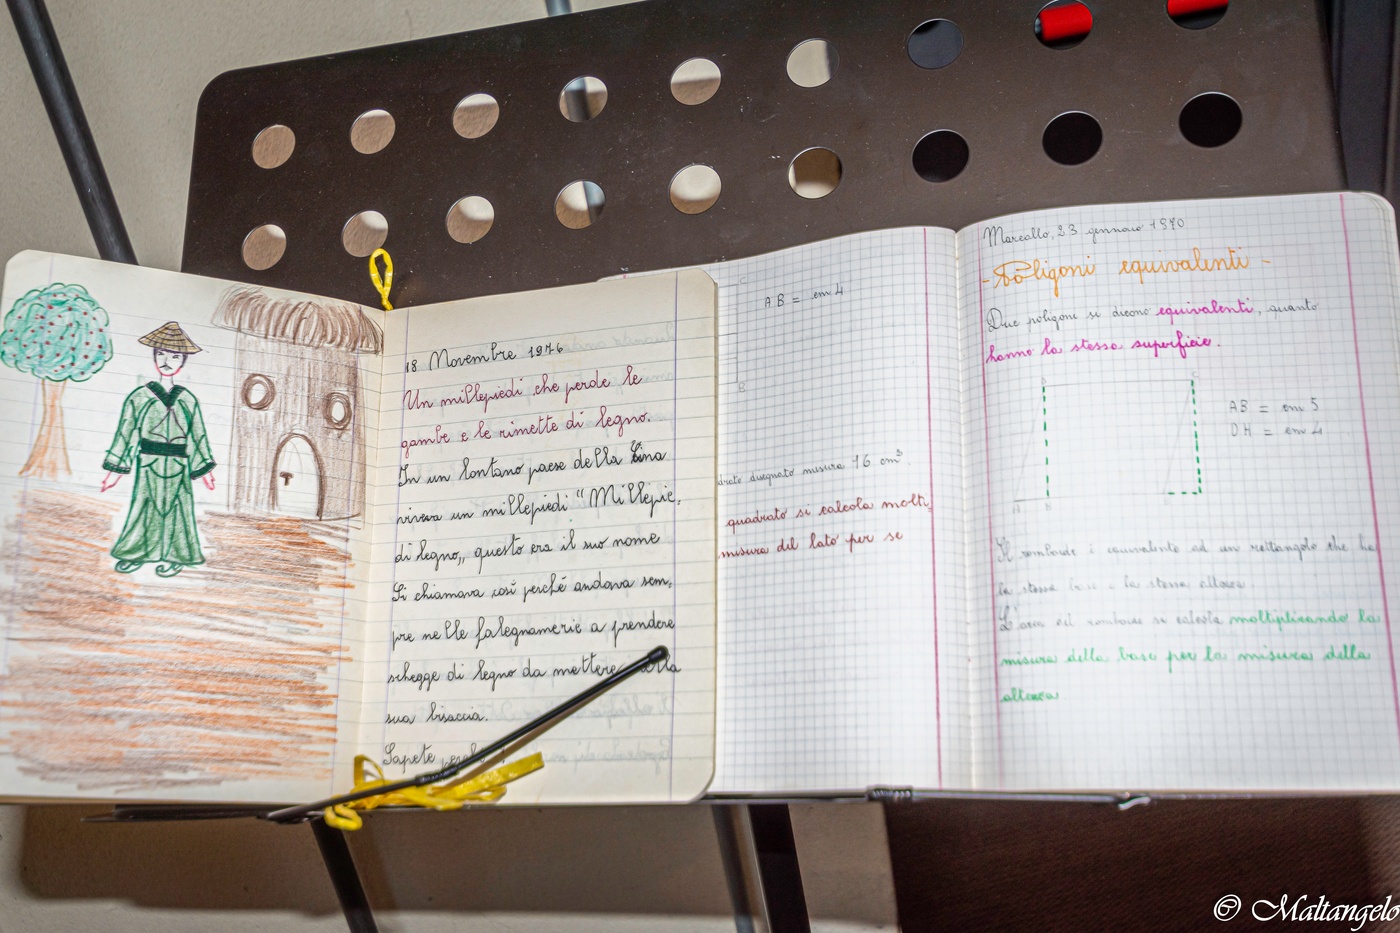 18 Novembre 1976
Un millepiedi che perde le
gambe e le rimette di legno.
In un lontano paese della Cina
viveva un millepiedi "Millepie,
di legno,, questo era il suo nome
Si chiamava così perché andava sem,
pre nelle falegnamerie a prendere
schegge di legno da mettere nella
sua bisaccia.
Sapete perché
C
AB = cm 4
B
drato disegnato misura 16 cm²
quadrato si calcola molti,
misura del lato per se
Marcallo, 23 gennaio 1970
- Poligoni equivalenti -
Due poligoni si dicono equivalenti, quanto
hanno la stessa superficie.
D C
AB = cm 5
DH = cm 4
A H
Il romboide è equivalente ad un rettangolo che ha
la stessa la stessa altezza
L'area del romboide si calcola moltiplicando la
misura della base per la misura della
altezza
© Maltangelo